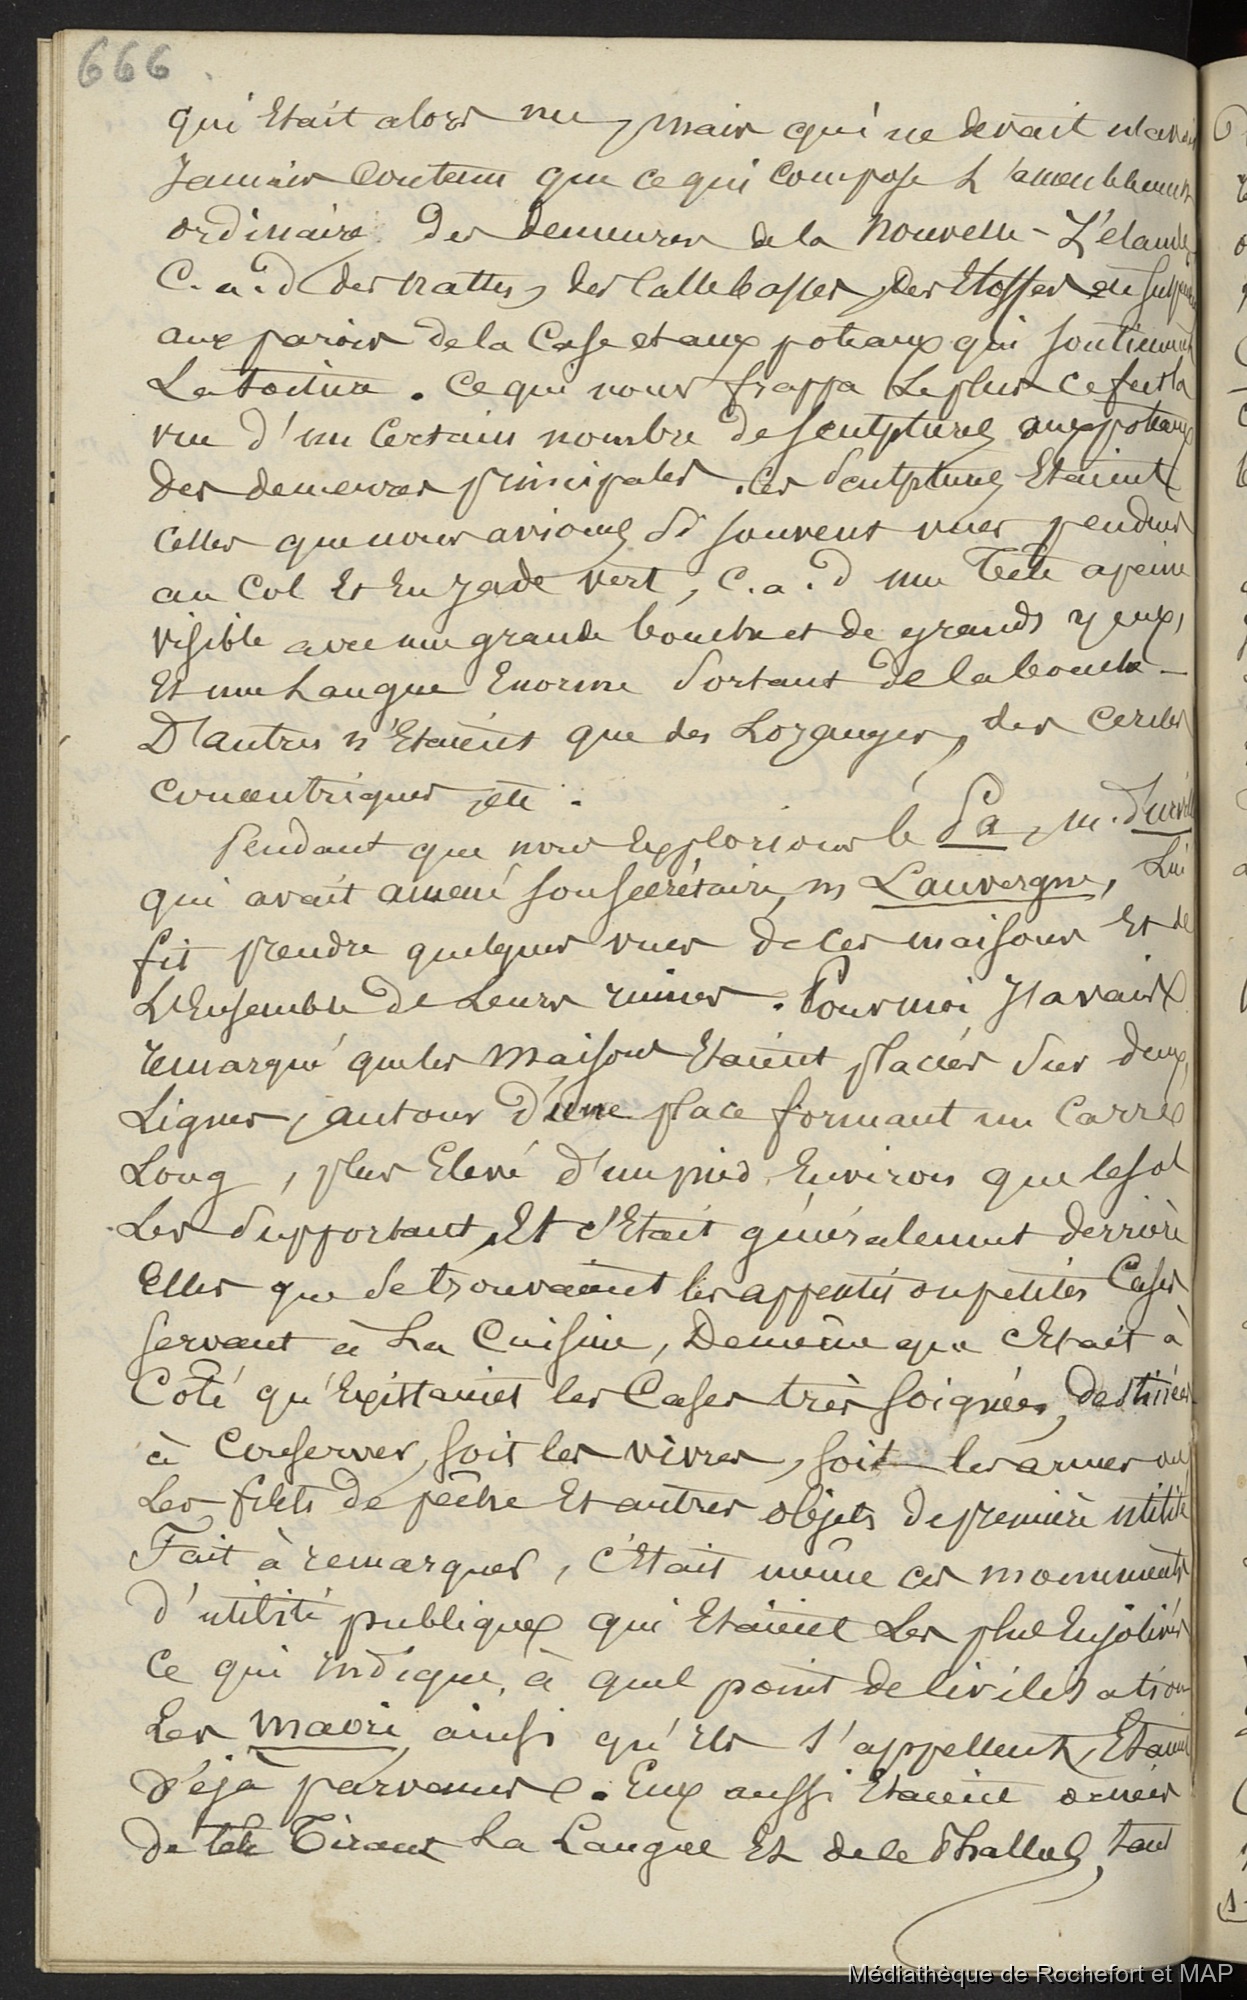 666
qui Etait alors nu, mais qui ne devait n'avoir
Jamais Contenu que ce qui compose L'ameublement
ordinaire des demeures de la Nouvelle-Z'élande
C.a.d des nattes, des Callebasses, des Etoffes
aux parois de la Case et aux poteaux qui soutiennent
La toiture. Ce qui nous frappa Le plus ce fut la
vue d'un Certain nombre de sculptures aux poteaux
des demeures principales. Ces Sculptures Etaient
Celles que nous avions si souvent vues pendues
au Col Et En jade vert, C.a.d une Tête a peine
visible avec une grande bouche et de grands yeux,
Et une Langue Enorme Sortant de la bouche -
D'autres n'Etaient que des Lozanges, des Cercles
concentriques, etc.
Pendant que nous Explorions le Pa, M. Durville
qui avait amené son secrétaire, m Lauvergne, Lui
fit prendre quelques vues de ces maisons Et de
L'Ensemble de Leurs ruines. Pour moi J'avais
remarqué que les Maisons Etaient placées Sur deux
Lignes, autour d'une place formant un Carré
Long, plus Elevé d'un pied Environ que le sol
Les Supportant, Et c'Etait généralement derrière
Elles que se trouvaient les appentis ou petites Cases
servant à La Cuisine, De même que c'Etait à
Côté qu'Existaient les Cases très soignées, destinées
à Conserver, soit les vivres, soit les armes ou
Les filets de pêche Et autres objets de première utilité
Fait à remarquer, c'Etait même ces monuments
d'utilité publique qui Etaient Les plus Enjolivés
Ce qui indique, à quel point de civilisation
Les Maori, ainsi qu'ils s'appellent, Etaient
d'éjà parvenus. Eux aussi Etaient ornés
de tête Tirant La Langue Et de le Phallus, tant
Médiathèque de Rochefort et MAP